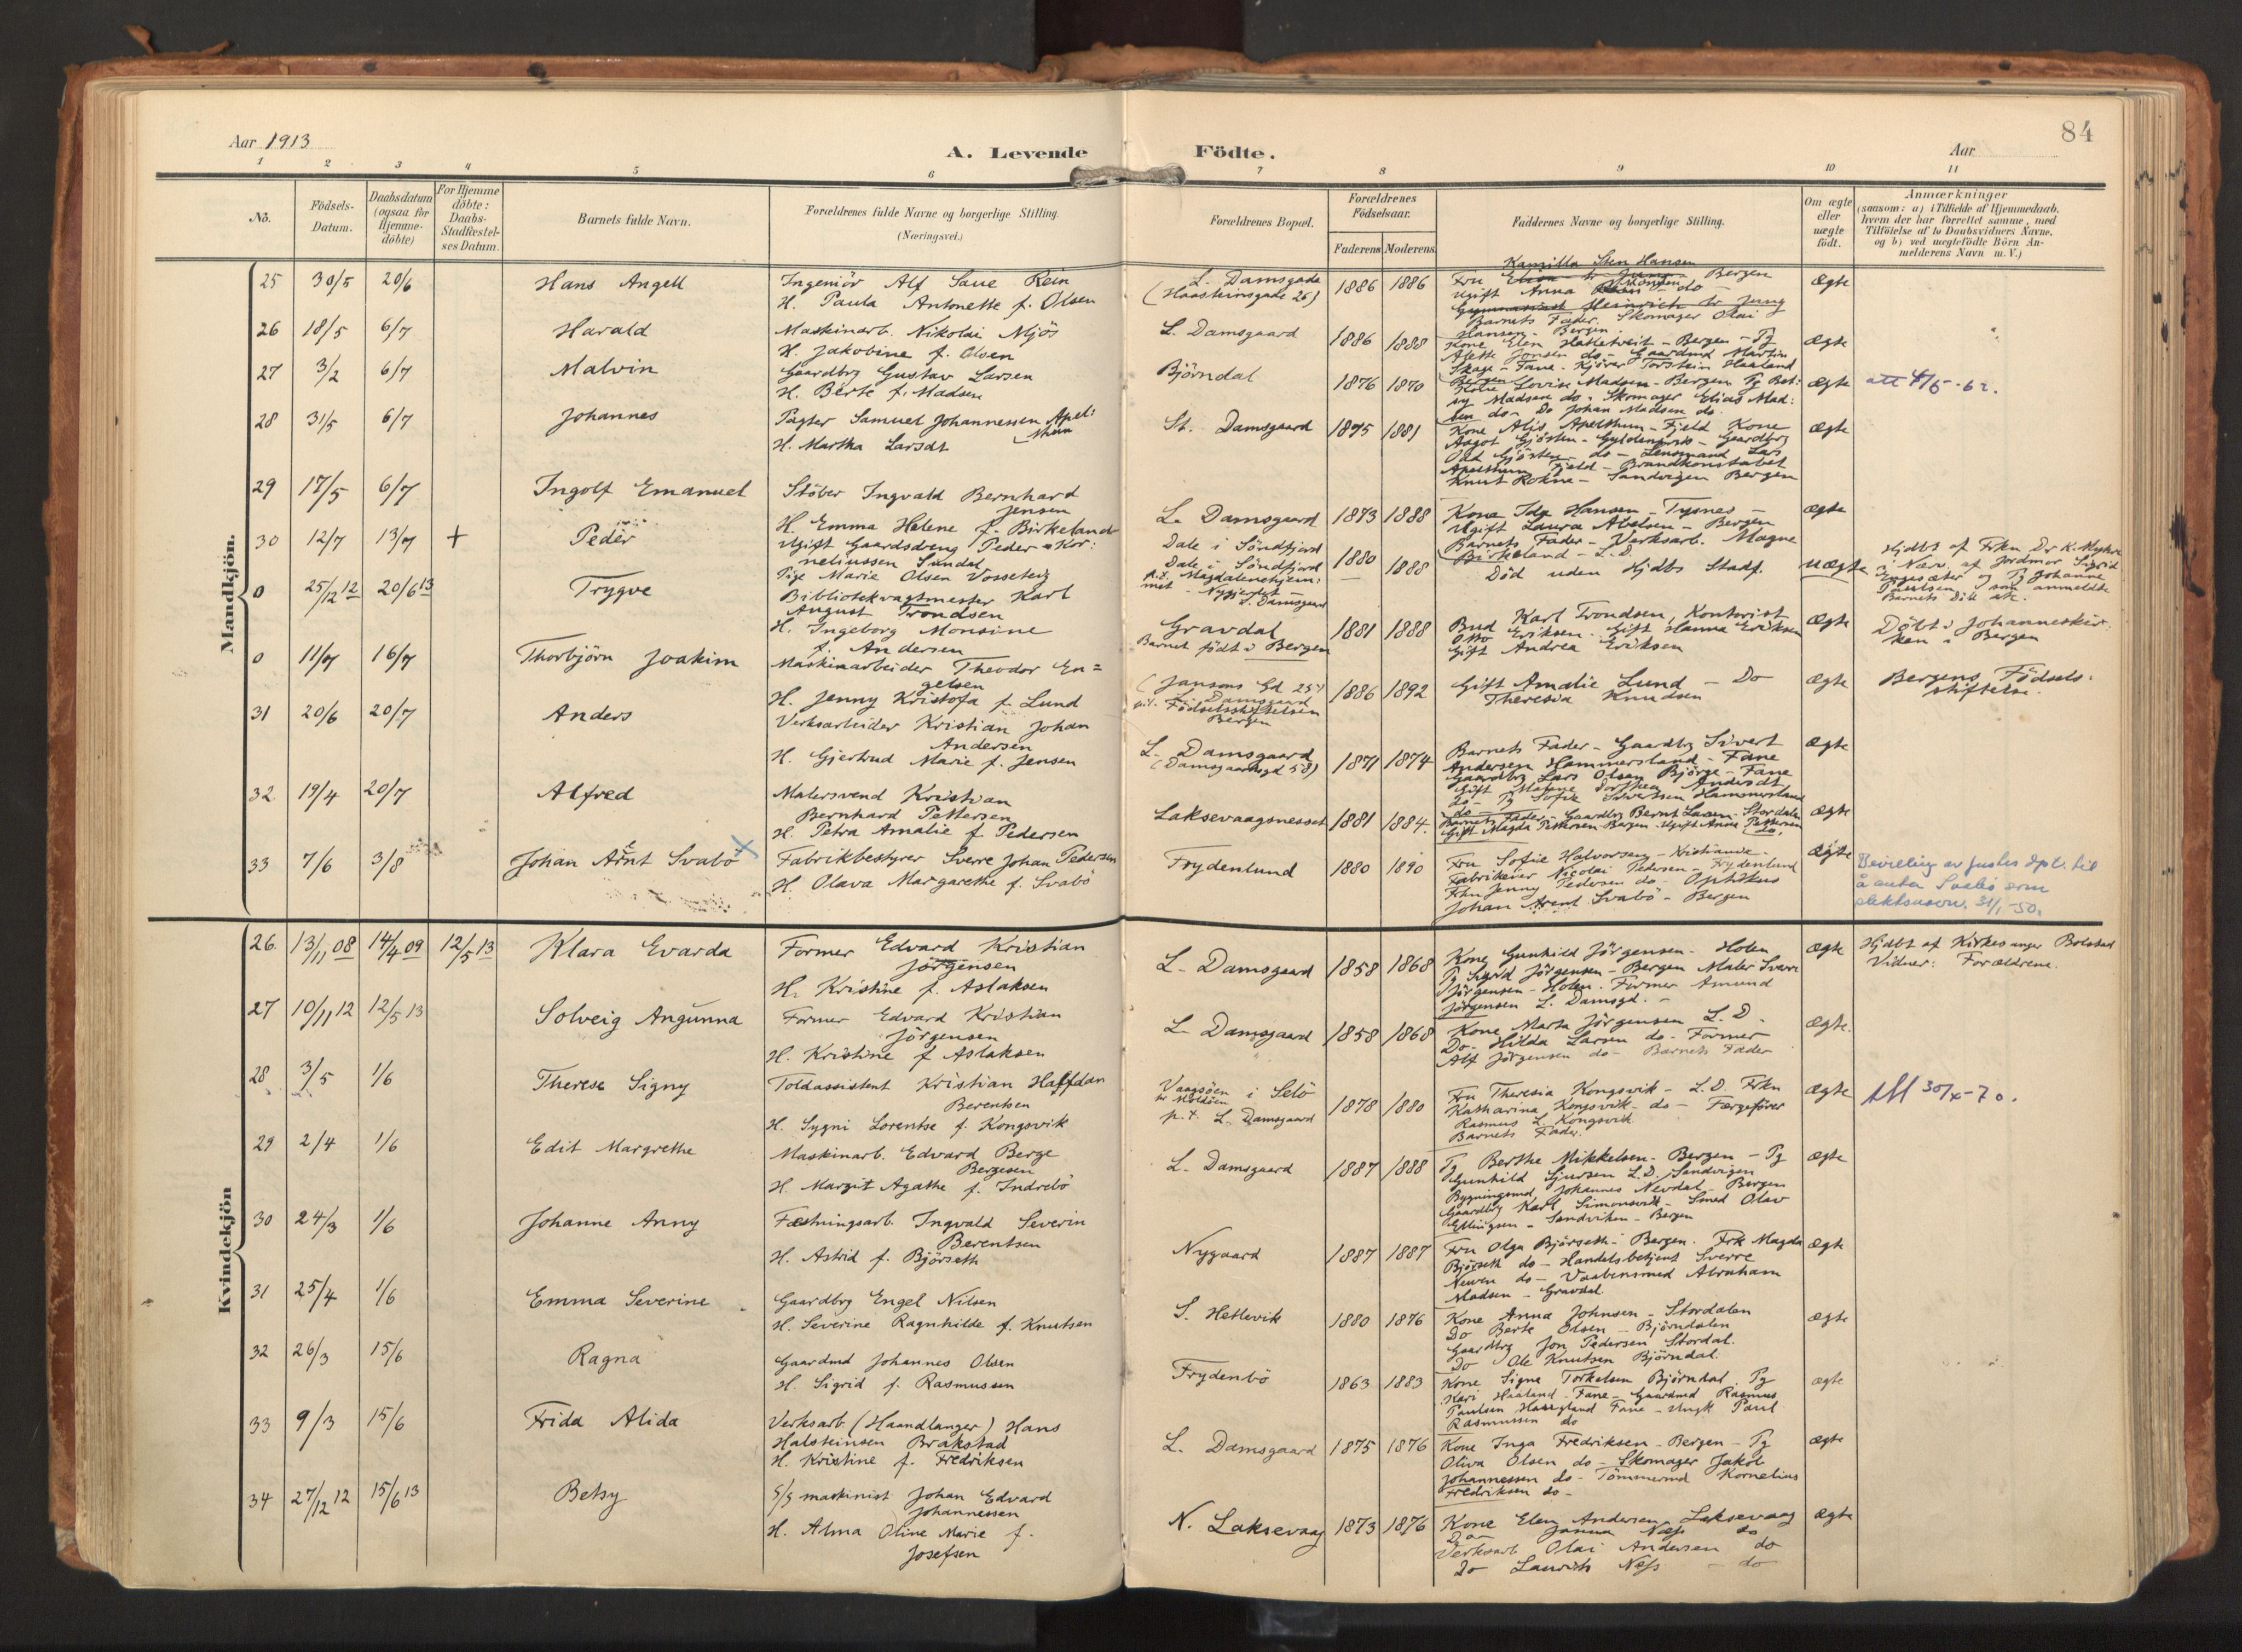 84
Aar 1913
A. Levende Födte.
Aar
1 2 3 4 5 6 7 8 9 10 11
No.
Födsels-
Datum.
Daabsdatum
(ogsaa for
Hjemme-
döbte)
For Hjemme
döbte:
Daabs-
Stadfæstel-
ses Datum.
Barnets fulde Navn.
Forældrenes fulde Navne og borgerlige Stilling.
(Næringsvei.)
Forældrenes Bopæl.
Forældrenes
Födselsaar.
Faderens Moderens
Faddernes Navne og borgerlige Stilling.
Om ægte
eller
uægte
födt.
Anmærkninger
(saasom: a) i Tilfælde af Hjemmedaab,
hvem der har forrettet samme, med
Tilföielse af to Daabsvidners Navne,
og b) ved uægtefödte Börn An-
melderens Navn m. V.)
Mandkjön.
25 30/5 20/6 Hans Angell
Ingeniör Alf Saue Rein
H. Paula Antonette f. Olsen
L. Damsgade
(Haasteinsgade 26)
1886 1886
Kamilla Sten Hansen
Fru Bergen
Ugift Anna do
Barnets Fader. Skomager Olai
Hansen - Bergen.
Ægte
26 18/5 6/7 Harald
Maskinarb. Nikolai Mjös
H. Jakobine f. Olsen
L. Damsgaard
1886 1888
Kone Elen Hatletveit - Bergen - Pg
Alette Jonsen do - Gaardmd Martin
Skage - Fane - Kjörer Torstein Haaland
Bergen
ægte
27 3/2 6/7 Malvin
Gaardbrg Gustav Larsen
H. Berte f. Madsen
Björndal
1876 1870
Kone Lovise Madsen - Bergen Pg Bet:
sy Madsen do - Skomager Elias Mad:
sen do - Do Johan Madsen do.
ægte
att 4/5-62.
28 31/5 6/7 Johannes
Pagter Samuel Johannessen Apel:
thun
H. Martha Larsdt
St. Damsgaard
1875 1881
Kone Alis Apelthun - Fjeld Kone
Aagot Gjösten - Gyldenpris - Gaardbrg
Odd Gjösten do - Lensmand Lars
Apelthun Fjeld - Brandkonstabel
Knut Rokne - Sandvigen Bergen
ægte
29 17/5 6/7 Ingolf Emanuel
Stöber Ingvald Bernhard
Jensen
H. Emma Helene f. Birkeland
L. Damsgaard
1873 1888
Kone Ida Hansen - Tysnes -
Ugift Laura Abelsen - Bergen
Barnets Fader - Verksarb. Magne
Birkeland - L.D.
ægte
30 12/7 13/7 + Peder
Ugift Gaardsdreng Peder Kor:
neliussen Sundal
Pige Marie Olsen Vosseteig
Dale i Söndfjord
Dale i Söndfjord
p.t. Magdalenehjem:
met - Nygjerdet -
L. Damsgaard
1880 1888
Död uden Hjdbs Stadf.
uægte
Hjdbt af Frkn Dr K. Myhre
i Nærv. af Jordmor Sigrid
og Pg Johanne
Paulsen, som anmeldte
Barnets Död etc.
0 25/12 12 20/6 13 Trygve
Bibliotekvagtmester Karl
August Trondsen
H. Ingeborg Monsine
f. Andersen
Gravdal
Barnet födt i Bergen
1881 1888
Bud Karl Trondsen, Kontorist
Otto Eriksen. Gift Hanna Eriksen
Gift Andrea Eriksen
ægte
Döbt i Johanneskir:
ken i Bergen
0 11/7 16/7 Thorbjörn Joakim
Maskinarbeider Theodor En=
gelsen
H. Jenny Kristofa f. Lund
(Jansons Gd 25)
L. Damsgaard
p.t. Födselsstiftelsen
Bergen
1886 1892
Gift Amalie Lund - Do
Theresia Knudsen
ægte
Bergens Födsels:
stiftelse.
31 20/6 20/7 Anders
Verksarbeider Kristian Johan
Andersen
H. Gjertrud Marie f. Jensen
L. Damsgaard
(Damsgaardsgd 58)
1871 1874
Barnets Fader - Gaardbrg Sivert
Andersen Hammersland - Fane
Gaardbrg Lars Olsen Björge - Fane
Gift Malene Dorthea Andersdt
do - Pg Sofie Sivertsen Hammersland
do
ægte
32 19/4 20/7 Alfred
Malersvend Kristian
Bernhard Pettersen
H. Petra Amalie f. Pedersen
Laksevaagsnesset
1881 1884.
Barnets Fader - Gaardbrg Bernt Larsen - Stordalen
Gift Magda Pettersen Bergen. Ugift Anna Pettersen
do.
ægte
33 7/6 3/8 Johan Arnt Svabo
Fabrikbestyrer Sverre Johan Pedersen
H. Olava Margarethe f. Svabö
Frydenlund
1880 1890
Fru Sofie Halvorsen - Kristiania -
Fabrikeier Nicolai Pedersen - Frydenlund
Frkn Jenny Pedersen do - Optikus
Johan Arent Svabö - Bergen
Ægte
Bevilling av Justis dpt. til
å anta Svabø som
slektsnavn. 31/1-50.
Kvindekjön
26. 13/11 08 14/4 09 12/5 13 Klara Evarda
Former Edvard Kristian
Jörgensen
H. Kristine f. Aslaksen
L. Damsgaard
1858 1868
Kone Gunhild Jörgensen - Holen
Pg Sigrid Jörgensen - Bergen Maler Sverre
Jörgensen - Holen. Former Amund
Jörgensen L. Damsgd. -
ægte
Hjdbt af Kirkesanger Bolstad
Vidner: Forældrene.
27 10/11 12 12/5 13 Solveig Angunna
Former Edvard Kristian
Jörgensen
H. Kristine f Aslaksen
L. Damsgaard
1858 1868
Kone Marta Jörgensen L.D.
Do - Hilda Larsen do - Former
Alf Jörgensen do - Barnets Fader
ægte.
28 3/5 1/6 Therese Signy
Toldassistent Kristian Halfdan
Berentsen
H. Sygni Lorentse f. Kongsvik
Vaagsöen i Selö
p.t. L. Damsgaard
1878 1880
Fru Theresia Kongsvik - L.D. Frkn
Katharina Kongsvik - do - Færgeförer
Rasmus L. Kongsvik
Barnets Fader.
ægte
att 30/x-70.
29 2/4 1/6 Edit Margrethe
Maskinarb. Edvard Berge
Bergesen
H. Margit Agathe f. Indrebö
L. Damsgaard
1887 1888
Pg Berthe Mikkelsen - Bergen - Pg
Gunhild Sjursen L.D. Sandvigen
Bygningsmd Johannes Nevdal - Bergen
Gaardbrg Karl Simonsvik - Smed Olav
Ellingsen - Sandviken - Bergen
ægte
30 24/3 1/6 Johanne Anny
Fæstningsarb. Ingvald Severin
Berentsen
H. Astrid f. Björseth
Nygaard
1887 1887
Fru Olga Björseth - Bergen. Frk Magda
Björseth do - Handelsbetjent Sverre
Neuen do - Vaabensmed Abraham
Madsen - Gravdal.
ægte
31 25/4 1/6 Emma Severine
Gaardbrg Engel Nilsen
H. Severine Ragnhilde f. Knutsen
S. Hetlevik
1880 1876
Kone Anna Johnsen - Stordalen
Do Berte Olsen - Björndalen
Gaardbrg Jon Pedersen Stordal.
Do Ole Knutsen Björndal.
ægte
32 26/3 15/6 Ragna
Gaardmd Johannes Olsen
H. Sigrid f. Rasmussen
Frydenbö
1863 1883
Kone Signe Torkelsen Björndal Pg
Kari Haaland - Fane - Gaardmd Rasmus
Paulsen Haugland Fane - Ungk Paul
Rasmussen do
ægte
33 9/3 15/6 Frida Alida
Verksarb. (Haandlanger) Hans
Halsteinsen Brakstad
H. Kristine f. Fredriksen
L. Damsgaard
1875 1876
Kone Inga Fredriksen - Bergen - Pg
Oliva Olsen do - Skomager Jakob
Johannessen do - Tömmermd Kornelius
Fredriksen do -
ægte
34 27/12 12 15/6 13 Betsy
S/S maskinist Johan Edvard
Johannessen
H. Alma Oline Marie f.
Josefsen
N. Laksevaag
1873 1876
Kone Elen Andersen Laksevaag
Do Janna Næss do
Verksarb Olai Andersen do
Do Laurits Næss - do
Ægte